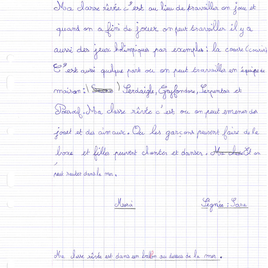 Ma classe rêvée c'est au lieu de travailler on joue et
quand on a fini de jouer on peut travailler il y a
aussi des jeux Olympiques par exemples : la course
C'est aussi quelque part ou on peut travailler en équipe ou
maison : Serdaigle, Gryffondore, Serpentar et
Ma classe rêvée c'est ou on peut emener des
jouet et des animaux. Ou les garçons peuvent faire de la
boxe et filles peuvent chanter et danser. on
peut rester dans la mer.
Merci Signée : Sara
Ma classe rêvée est dans un ballon au dessus de la mer.